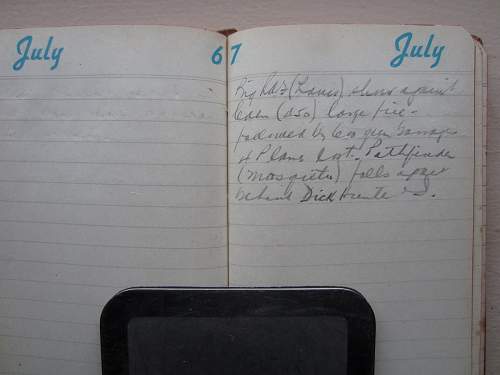 July 6
7 July
Big Raid (Lancs) show against
Caen (450) large fire -
followed by 600 gun barrage
4 Planes lost. Pathfinder
(Mosquito) falls apart
behind Dick